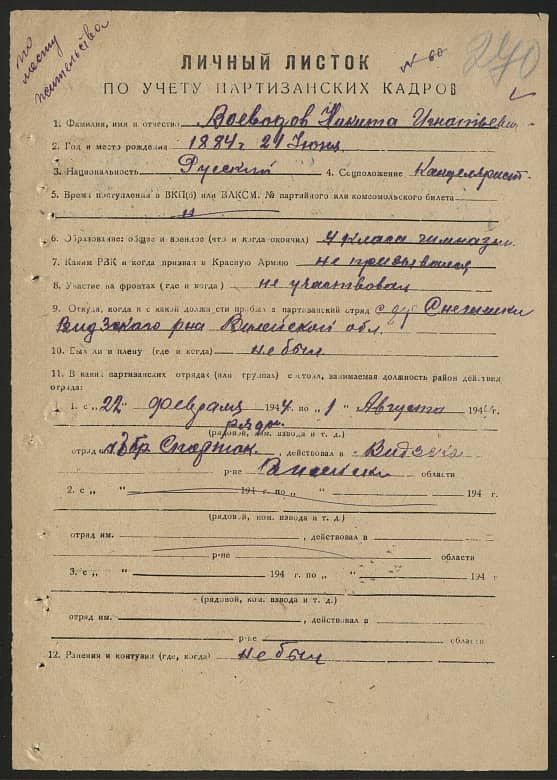 по
месту
жительства
ЛИЧНЫЙ ЛИСТОК
№ 60
270
ПО УЧЕТУ ПАРТИЗАНСКИХ КАДРОВ
1. Фамилия, имя и отчество Воеводов Никита Игнатьевич
2. Год и место рождения 1884 г 24 Июня
3. Национальность Русский 4. Соцположение Канцелярист
5. Время поступления в ВКП(б) или ВЛКСМ. № партийного или комсомольского билета
6. Образование: общее и военное (что и когда окончил) 4 класа гимназии
7. Каким РВК и когда призван в Красную Армию не призывался
8. Участие на фронтах (где и когда) не участвовал
9. Откуда, когда и с какой должности прибыл в партизанский отряд с дер Снегишки
Видзского р-на Вилейской обл.
10. Был ли в плену (где и когда) не был
11. В каких партизанских отрядах (или группах) состоял, занимаемая должность район действия
отряда:
1. с „22" февраля 1944 г. по „1" Августа 1944 г.
рядов.
(рядовой, ком. взвода и т. д.)
отряд бр Спартак, действовал в Видзск
р-не Вилейск области
2. с „ " 194 г. по „ " 194 г.
(рядовой, ком. взвода и т. д.)
отряд им. , действовал в
р-не области
3. с „ " 194 г. по „ " 194 г
(рядовой, ком. взвода и т. д.)
отряд им. , действовал в
р-не области
12. Ранения и контузии (где, когда) не был